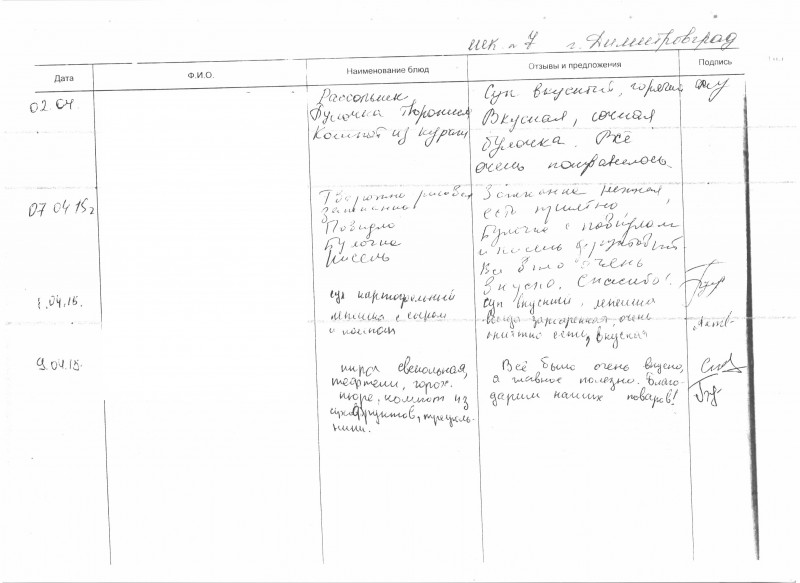 шк. №7 г. Димитровград
Дата Ф.И.О. Наименование блюд Отзывы и предложения Подпись
02.04 Рассольник Суп вкусный, горячий
Булочка Творожная Вкусная, сочная
Компот из кураги булочка. Всё
очень понравилось.
07 04 15г Творожно рисовая Запеканка нежная,
запеканка есть приятно
Повидло Булочка с повидлом
Булочка и кисель фруктовый.
Кисель Всё было очень
вкусно. Спасибо!
1.04.15. суп картофельный суп вкусный, лепешка
лепешка с сыром всегда зажаренная, очень
и компот приятно есть, вкусная
9.04.15. икра свекольная, Всё было очень вкусно,
тефтели, горох. а главное полезно. Благо-
пюре, компот из дарим наших поваров!
сухофруктов, треуголь-
ники.